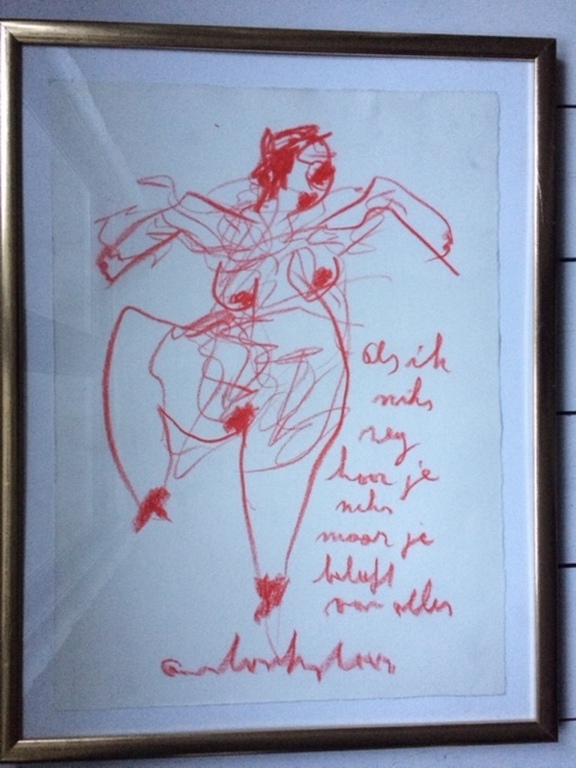 als ik
niks
zeg
hoor je
niks
maar je
van alles